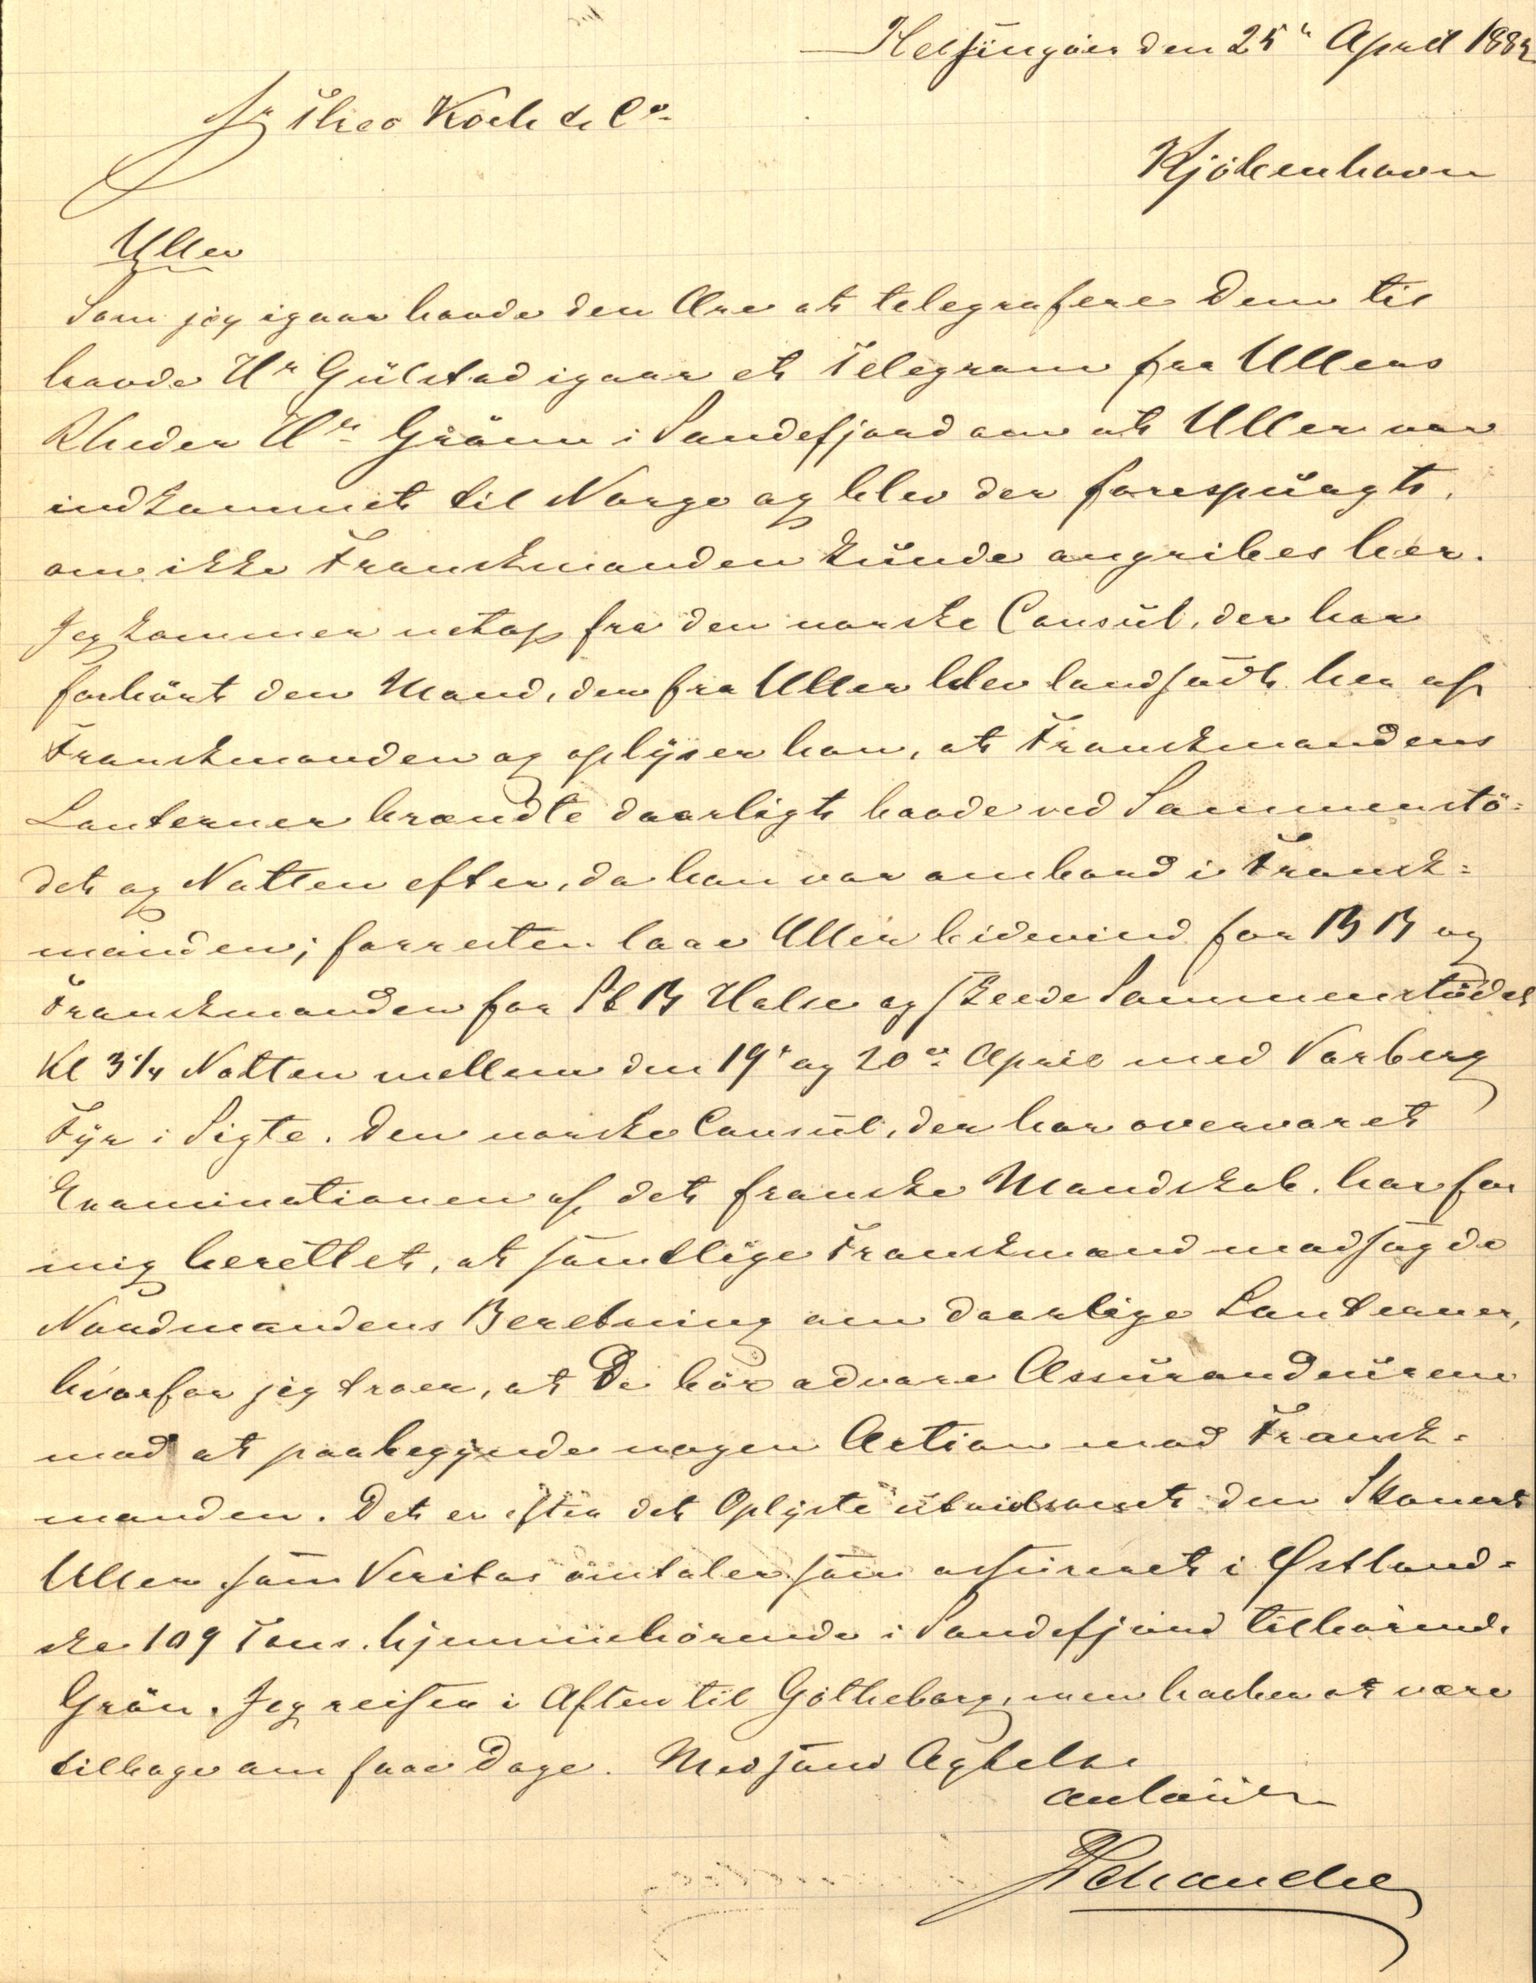 Helsingöer den 25 April 188
Hr Theo Koch & Co
Kjöbenhavn
Uller
Som jeg igaar havde den Ære at telegrafere Dem til
havde Hr Gülstad igaar et Telegram fra Ullers
Rheder Hr Grönn i Sandefjord om at Uller var
indkommet til Norge og blev der forespürgt,
om ikke Franskmanden künde angribes her.
Jeg kommer netop fra den norske Consül, der har
forhört den Mand, der fra Uller blev landsadt her af
Franskmanden og oplÿser han, at Franskmandens
Lanterner brændte daarligt baade ved Sammenstö-
det og Natten efter, da han var ombord i Fransk-
manden; forresten laae Uller bidevind for BB og
Franskmanden for StB Halse og skeede Sammenstödet
Kl 3¼ Natten mellem den 19 og 20 April med Varberg
Fÿr i Sigte. Den norske Consül, der har overværet
Examinationen af det franske Mandskab, har for
mig berettet, at samtlige Franskmænd modsagde
Nordmandens Beretning om daarlige Lanterner,
hvorfor jeg troer, at De bör advare Assürandeürerne
mod at paabegynde nogen Action mod Fransk-
manden. Det er efter det Oplyste den Skonnert
Uller som Veritas omtaler som assüreret i Østland-
ske 109 Tons. hjemmehörende i Sandefjord tilhörende
Grön. Jeg reiser i Aften til Götheborg, men haaber at være
tilbage om faae Dage. Med sand Agtelse